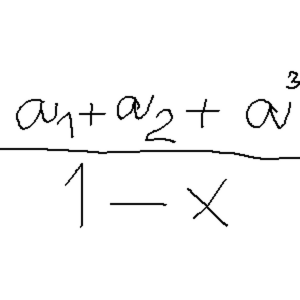 a₁+a₂+a³
1-x